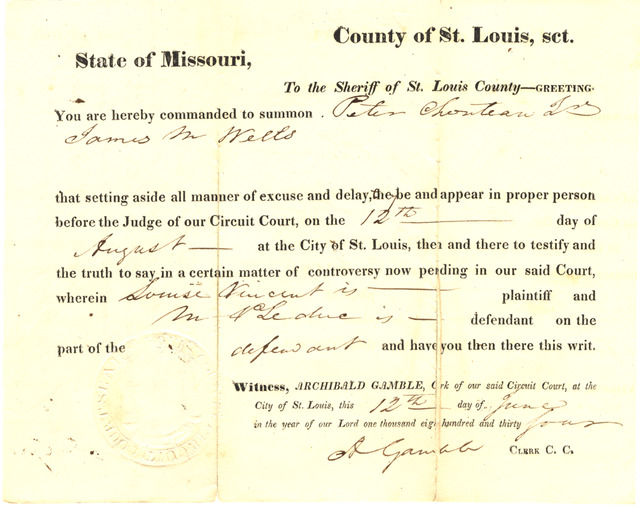 County of St. Louis, sct.
State of Missouri,
To the Sheriff of St. Louis County—GREETING.
You are hereby commanded to summon . Peter Chouteau Jr
James M Wells
that setting aside all manner of excuse and delay, they be and appear in proper person
before the Judge of our Circuit Court, on the 12th day of
August — at the City of St. Louis, then and there to testify and
the truth to say in a certain matter of controversy now pending in our said Court,
wherein Louise Vincent is — plaintiff and
M P Leduc is — defendant on the
part of the defendant and have you then there this writ.
Witness, ARCHIBALD GAMBLE, Clerk of our said Circuit Court, at the
City of St. Louis, this 12th day of June
in the year of our Lord one thousand eight hundred and thirty four
A Gamble CLERK C. C.